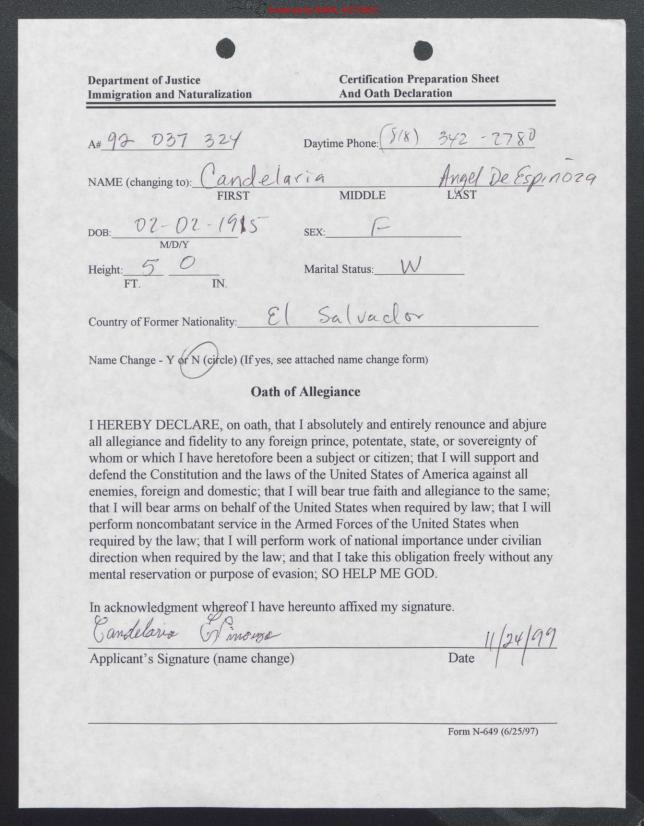 Department of Justice
Immigration and Naturalization
Certification Preparation Sheet
And Oath Declaration
A# 92 037 324 Daytime Phone: (818) 342-2780
NAME (changing to): Candelaria Angel De Espinoza
FIRST MIDDLE LAST
DOB: 02-02-1915 SEX: F
M/D/Y
Height: 5 0 Marital Status: W
FT. IN.
Country of Former Nationality: El Salvador
Name Change - Y or N (circle) (If yes, see attached name change form)
Oath of Allegiance
I HEREBY DECLARE, on oath, that I absolutely and entirely renounce and abjure
all allegiance and fidelity to any foreign prince, potentate, state, or sovereignty of
whom or which I have heretofore been a subject or citizen; that I will support and
defend the Constitution and the laws of the United States of America against all
enemies, foreign and domestic; that I will bear true faith and allegiance to the same;
that I will bear arms on behalf of the United States when required by law; that I will
perform noncombatant service in the Armed Forces of the United States when
required by the law; that I will perform work of national importance under civilian
direction when required by the law; and that I take this obligation freely without any
mental reservation or purpose of evasion; SO HELP ME GOD.
In acknowledgment whereof I have hereunto affixed my signature.
Candelaria 11/24/99
Applicant's Signature (name change) Date
Form N-649 (6/25/97)